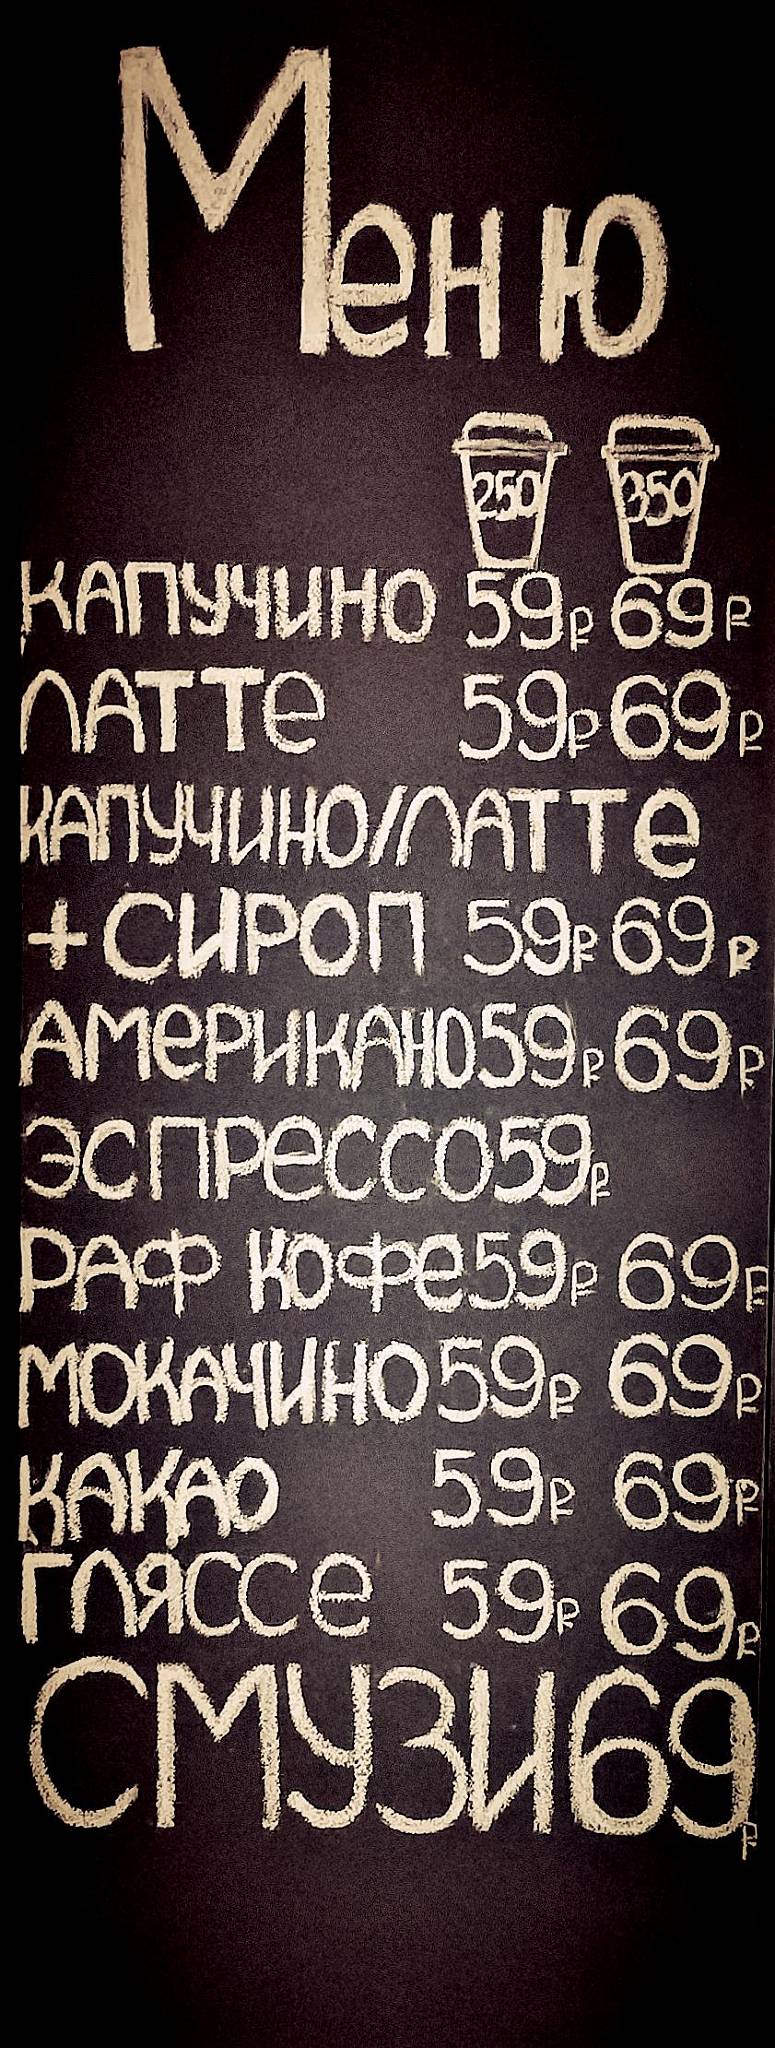 Меню
250 350
КАПУЧИНО 59₽ 69₽
ЛАТТе 59₽ 69₽
КАПУЧИНО/ЛАТТе
+СИРОП 59₽ 69₽
АМеРИКАНО 59₽ 69₽
ЭСПРеССО 59₽
РАФ КОФе 59₽ 69₽
МОКАЧИНО 59₽ 69₽
КАКАО 59₽ 69₽
ГЛЯССе 59₽ 69₽
СМУЗИ 69₽